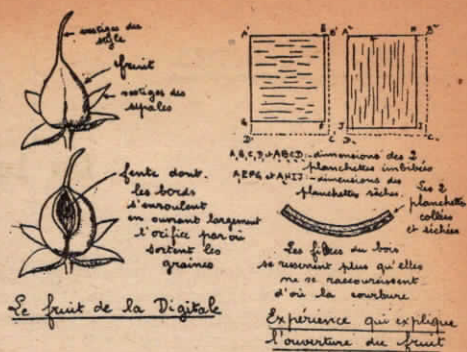 vestiges du
style
fruit
vestiges des
sépales
fente dont
les bords
s'enroulent
en ouvrant largement
l'orifice par où
sortent les
graines
Le fruit de la Digitale
A' E B' A" H B"
G F J I
D' C D" C"
dimensions des 2
planchettes imbibées
AEFG et AHIJ - dimensions des
planchettes sèches.
Les 2
planchettes
collées
et séchées
Les fibres du bois
se resserrent plus qu'elles
ne se raccourcissent
d'où la courbure
Expérience qui explique
l'ouverture du fruit